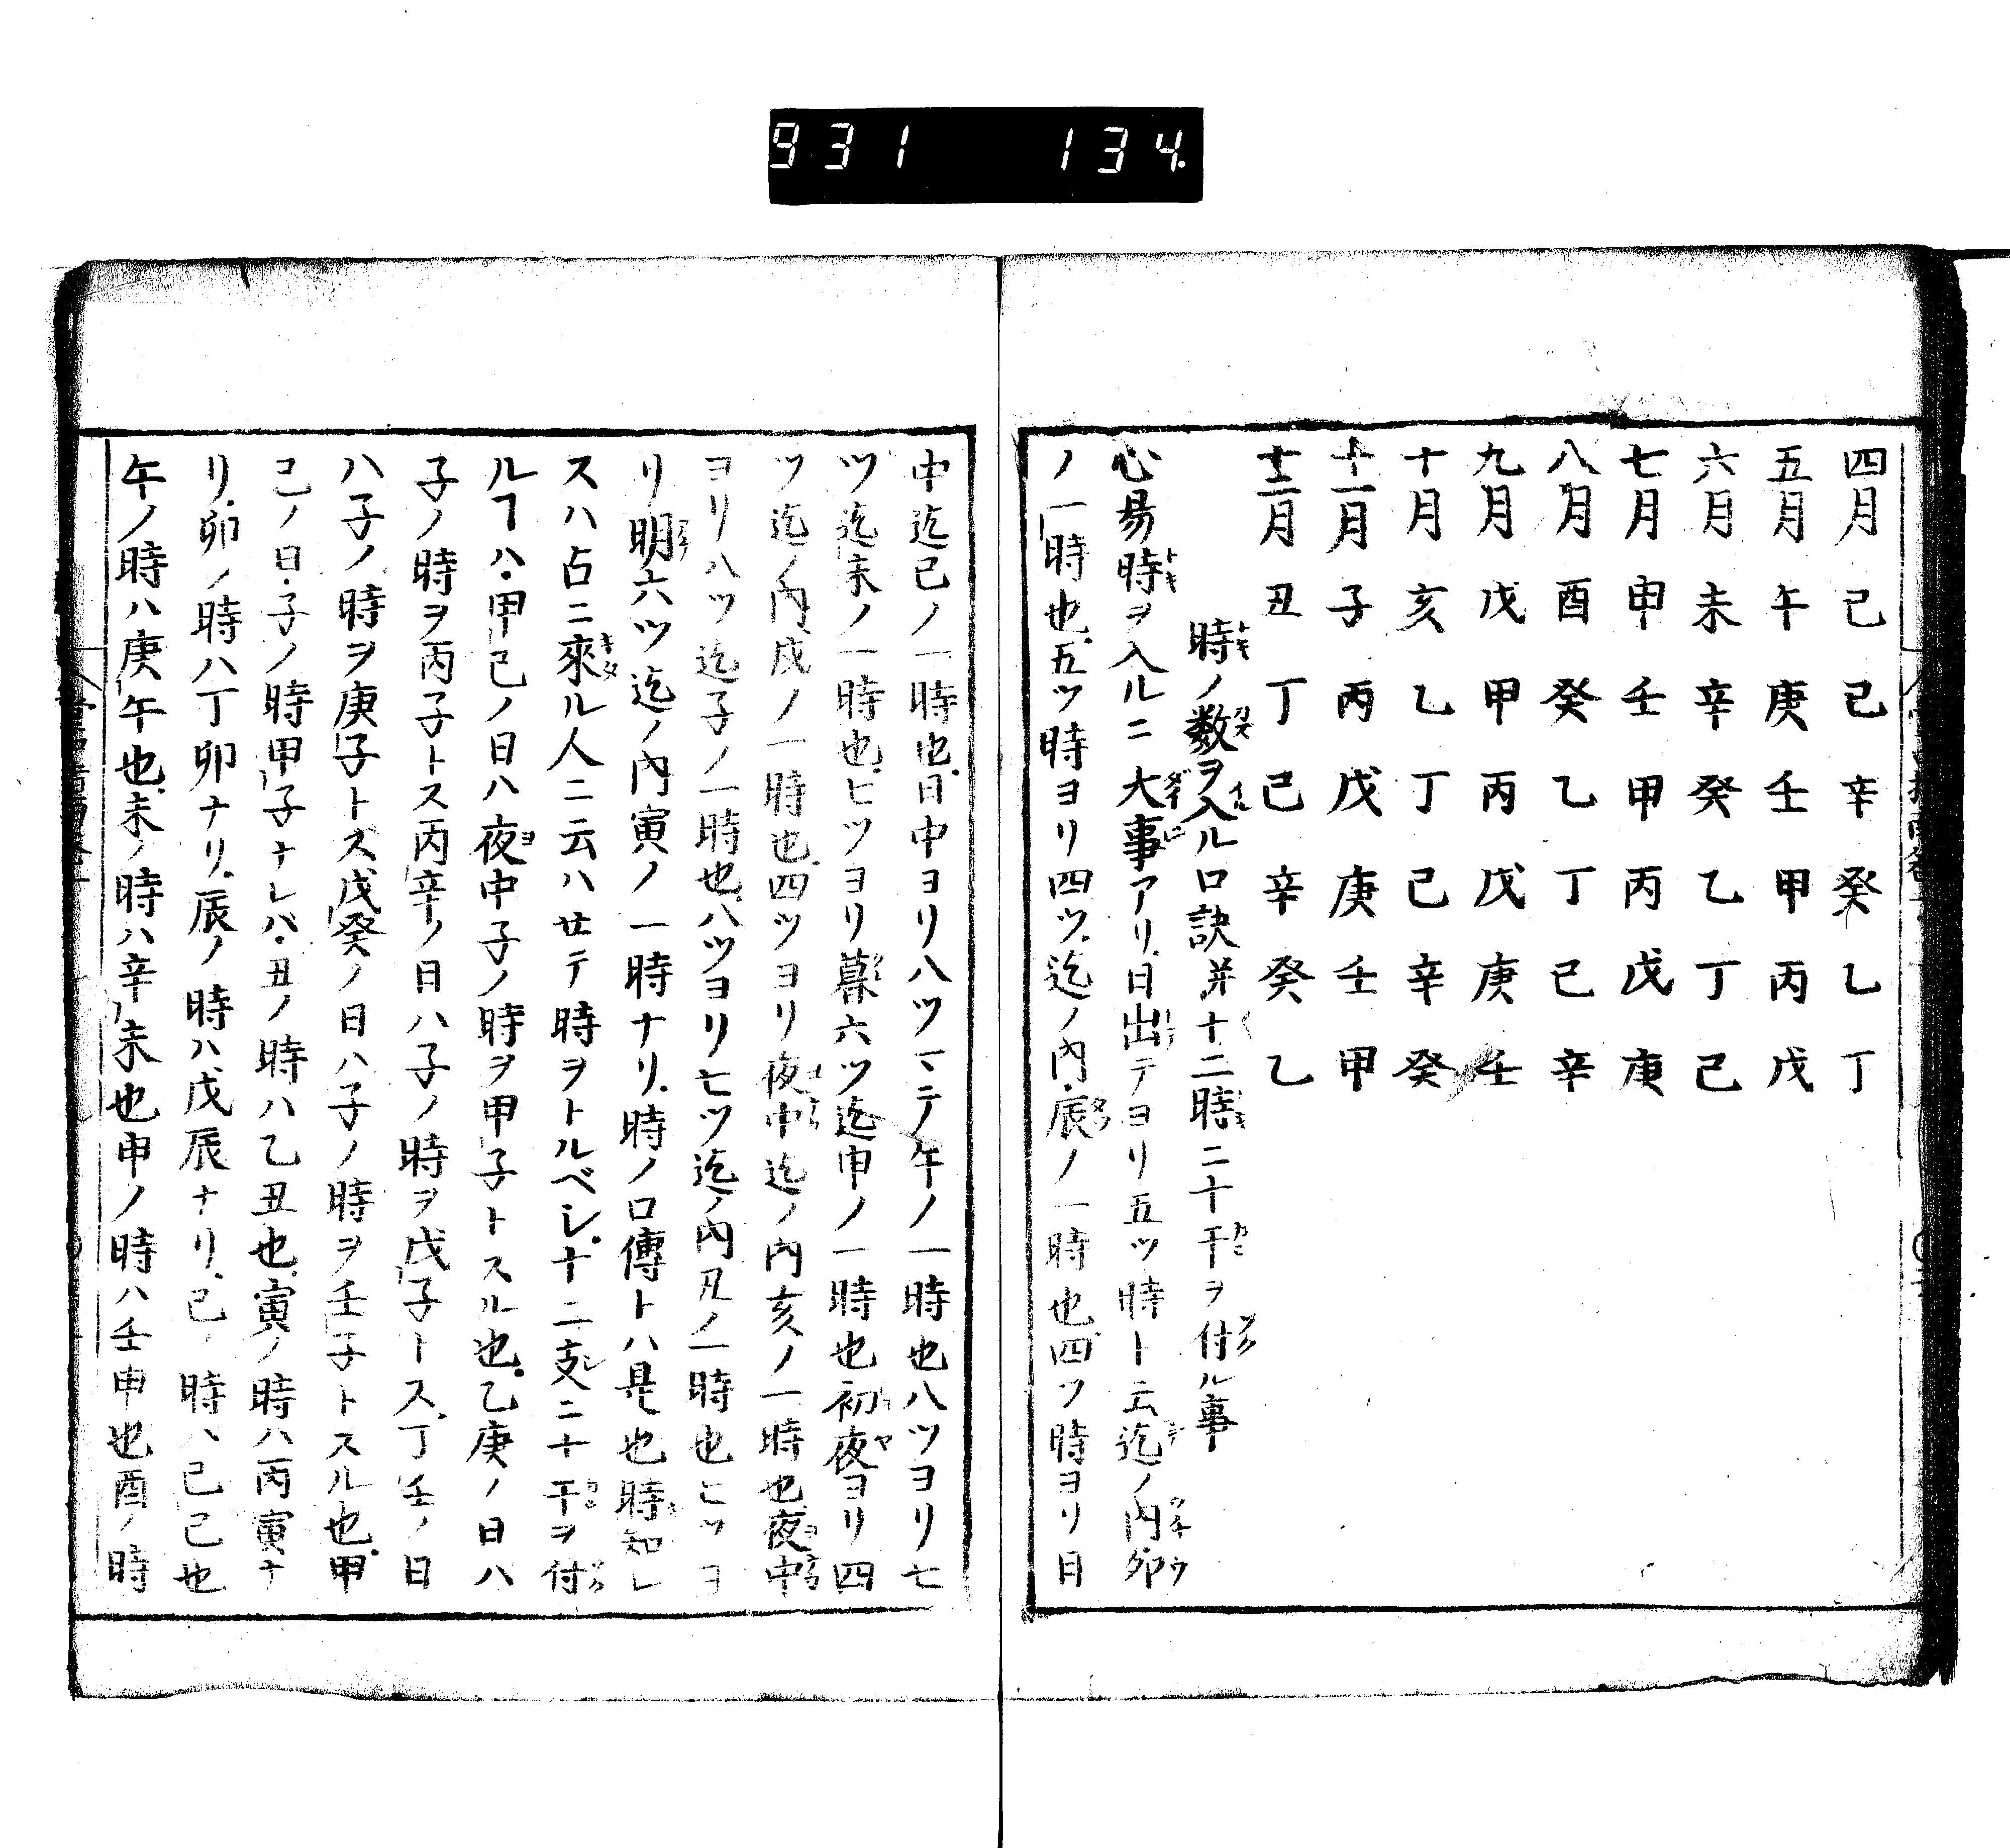 931 134.
四月 巳 己 辛 癸 乙 丁
五月 午 庚 壬 甲 丙 戊
六月 未 辛 癸 乙 丁 己
七月 申 壬 甲 丙 戊 庚
八月 酉 癸 乙 丁 己 辛
九月 戌 甲 丙 戊 庚 壬
十月 亥 乙 丁 己 辛 癸
十一月 子 丙 戊 庚 壬 甲
十二月 丑 丁 己 辛 癸 乙
時ノ数ヲ入ル口訣并十二時ニ十干ヲ付ル事
心易時ヲ入ルニ大事アリ日出テヨリ五ツ時ト云迄ノ内卯
ノ一時也五ツ時ヨリ四ツ迄ノ内辰ノ一時也四ツ時ヨリ日
中迄巳ノ一時也日中ヨリ八ツマテ午ノ一時也八ツヨリ七
ツ迄未ノ一時也七ツヨリ暮六ツ迄申ノ一時也初夜ヨリ四
ツ迄ノ内戌ノ一時也四ツヨリ夜中迄ノ内亥ノ一時也夜中
ヨリ八ツ迄子ノ一時也八ツヨリ七ツ迄ノ内丑ノ一時也七ツヨ
リ明六ツ迄ノ内寅ノ一時ナリ時ノ口傳トハ是也時知レ
スハ占ニ來ル人ニ云ハセテ時ヲトルベシ十二支ニ十干ヲ付
ルヿハ甲己ノ日ハ夜中子ノ時ヲ甲子トスル也乙庚ノ日ハ
子ノ時ヲ丙子トス丙辛ノ日ハ子ノ時ヲ戊子トス丁壬ノ日
ハ子ノ時ヲ庚子トス戊癸ノ日ハ子ノ時ヲ壬子トスル也甲
己ノ日子ノ時甲子ナレバ丑ノ時ハ乙丑也寅ノ時ハ丙寅ナ
リ卯ノ時ハ丁卯ナリ辰ノ時ハ戊辰ナリ巳ノ時ハ己巳也
午ノ時ハ庚午也未ノ時ハ辛未也申ノ時ハ壬申也酉ノ時